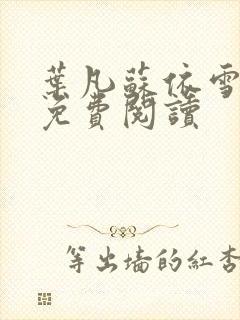 葉凡蘇依雪
免費閱讀
等出墻的紅杏